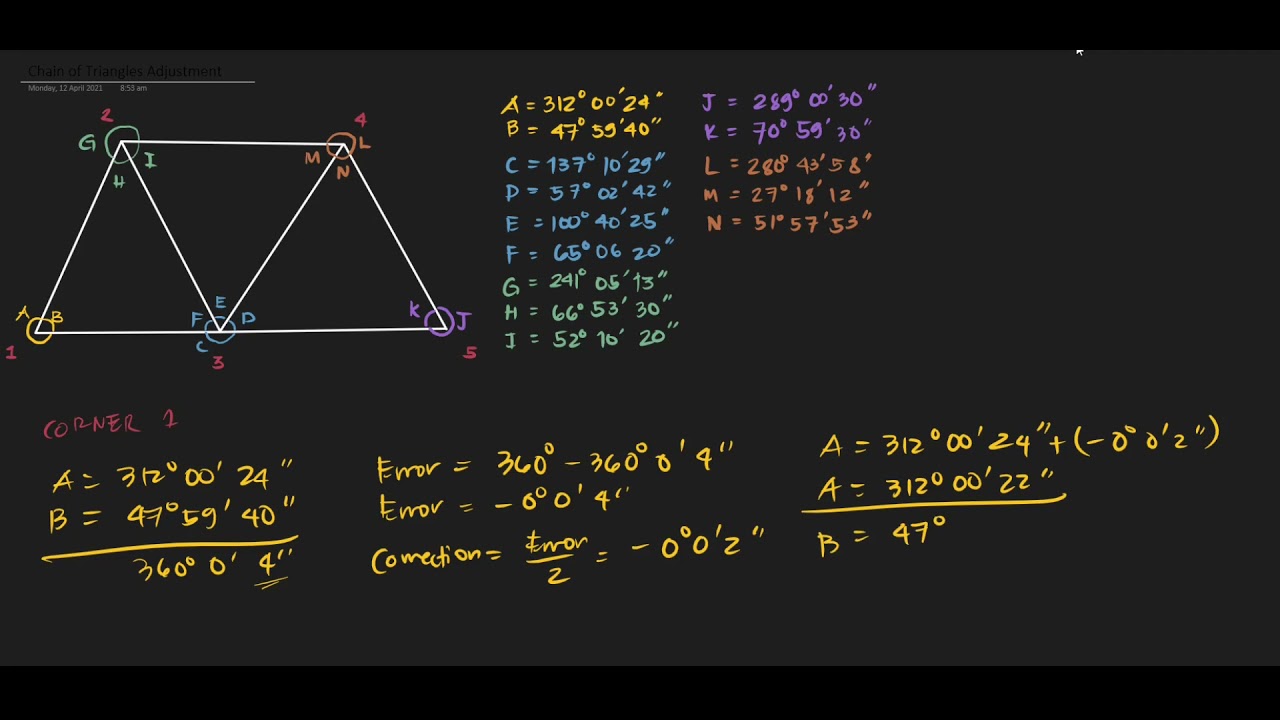 Chain of Triangles Adjustment
Monday, 12 April 2021 8:53 am
2
4
G
I
H
M
L
N
A
B
E
F
D
C
K
J
1
3
5
A = 312° 00' 24"
B = 47° 59' 40"
C = 137° 10' 29"
D = 57° 02' 42"
E = 100° 40' 25"
F = 65° 06 20"
G = 241° 05' 13"
H = 66° 53' 30"
I = 52° 10' 20"
J = 289° 00' 30"
K = 70° 59' 30"
L = 280° 43' 58"
M = 27° 18' 12"
N = 51° 57' 53"
CORNER 1
A = 312° 00' 24"
B = 47° 59' 40"
360° 0' 4"
Error = 360° - 360° 0' 4"
Error = - 0° 0' 4"
Correction = Error / 2 = - 0° 0' 2"
A = 312° 00' 24" + (- 0° 0' 2")
A = 312° 00' 22"
B = 47°